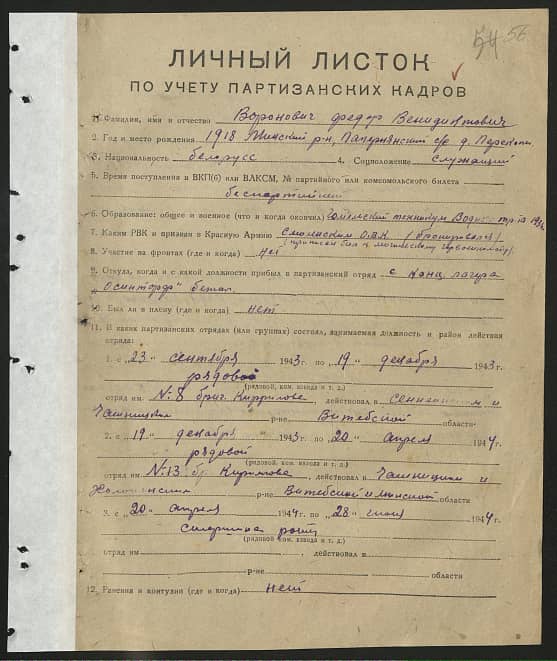 54 56
ЛИЧНЫЙ ЛИСТОК
ПО УЧЕТУ ПАРТИЗАНСКИХ КАДРОВ
1. Фамилия, имя и отчество Воронович Федор Венидиктович
2. Год и место рождения 1918 Минский р-н, Папернянский с/с д.
3. Национальность белорусс 4. Соцположение служащий
5. Время поступления в ВКП(б) или ВЛКСМ, № партийного или комсомольского билета
беспартийный
6. Образование: общее и военное (что и когда окончил) Гомельский техникум
7. Каким РВК и призван в Красную Армию Смоленским (бронирован)
8. Участие на фронтах (где и когда) нет
9. Откуда, когда и с какой должности прибыл в партизанский отряд с конц. лагеря
„Осинторф" бежал
10. Был ли в плену (где и когда) нет
11. В каких партизанских отрядах (или группах) состоял, занимаемая должность и район действия
отряда:
1. с „23" сентября 1943 г. по „19" декабря 1943 г.
рядовой
(рядовой, ком. взвода и т. д.)
отряд им. №8 бриг. Кирилова, действовал в и
Чашницком р-не Витебской области
2. с „19" декабря 1943 г. по „20" апреля 1944 г.
рядовой
(рядовой, ком. взвода и т. д.)
отряд им №13 бр. Кирилова, действовал в Чашницком и
р-не Витебской и Минской области
3. с „20" апреля 1944 г. по „28" июня 1944 г.
старшина роты
(рядовой, ком. взвода и т. д.)
отряд им. действовал в
р-не области
12. Ранения и контузии (где и когда) нет